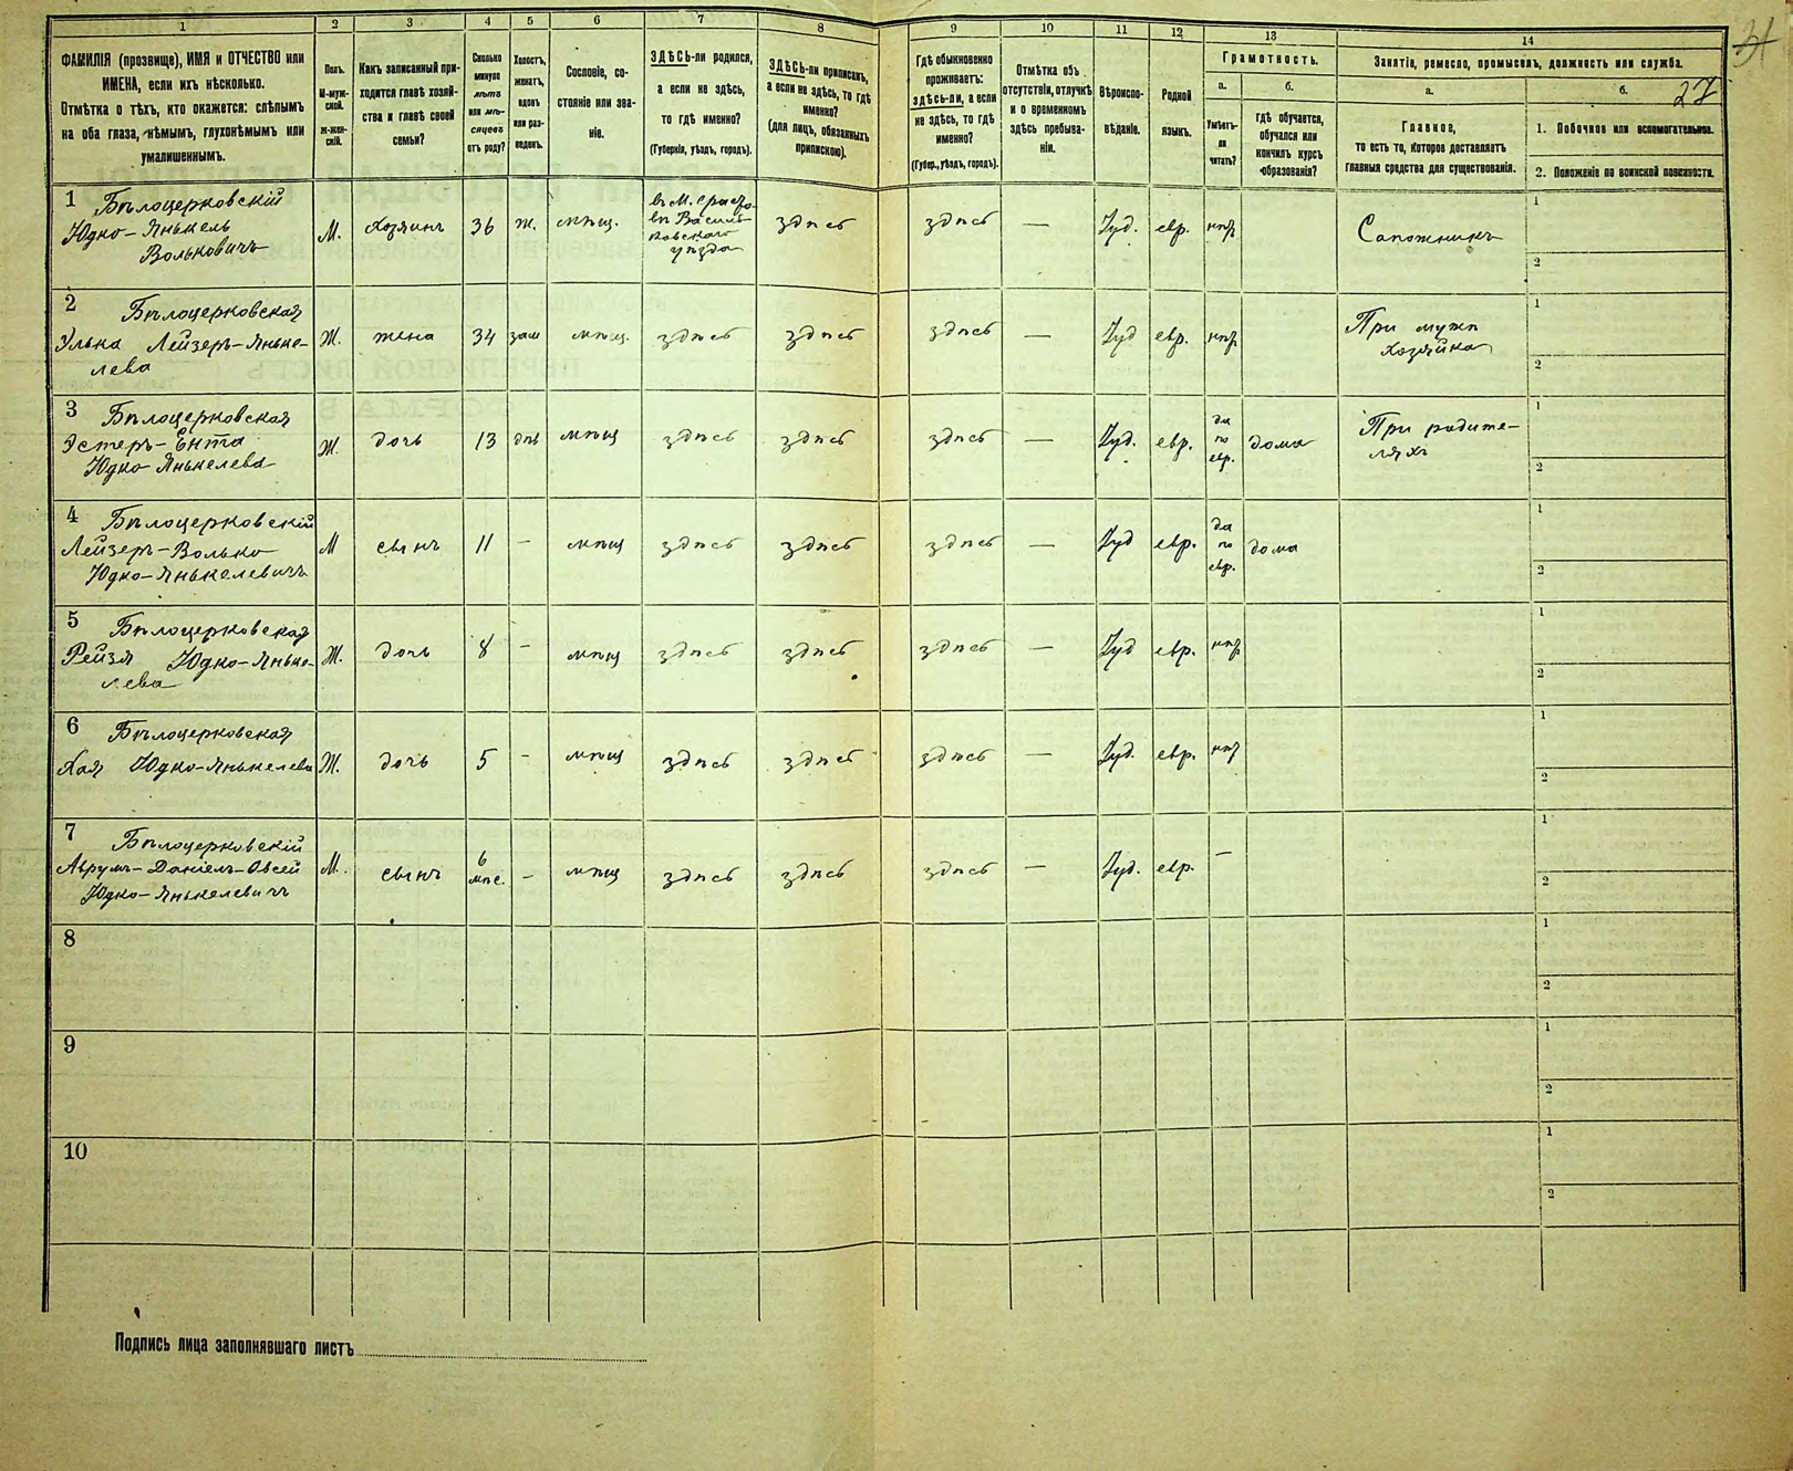 1 2 3 4 5 6 7 8 9 10 11 12 13 14
ФАМИЛІЯ (прозвище), ИМЯ и ОТЧЕСТВО или
ИМЕНА, если ихъ нѣсколько.
Отмѣтка о тѣхъ, кто окажется: слѣпымъ
на оба глаза, нѣмымъ, глухонѣмымъ или
умалишеннымъ.
Полъ.
М-муж-
ской.
Ж-жен-
скій.
Какъ записанный при-
ходится главѣ хозяй-
ства и главѣ своей
семьи?
Сколько
минуло
лѣтъ
или мѣ-
сяцевъ
отъ роду?
Холостъ,
женатъ,
вдовъ
или раз-
веденъ.
Сословіе, со-
стояніе или зва-
ніе.
ЗДѢСЬ-ли родился,
а если не здѣсь,
то гдѣ именно?
(Губернія, уѣздъ, городъ).
ЗДѢСЬ-ли приписанъ,
а если не здѣсь, то гдѣ
именно?
(для лицъ, обязанныхъ
припискою).
Гдѣ обыкновенно
проживаетъ:
здѣсь-ли, а если
не здѣсь, то гдѣ
именно?
(Губер., уѣздъ, городъ).
Отмѣтка объ
отсутствіи, отлучкѣ
и о временномъ
здѣсь пребыва-
ніи.
Вѣроиспо-
вѣданіе.
Родной
языкъ.
Грамотность.
а. б.
Умѣетъ-
ли
читать?
Гдѣ обучается,
обучался или
кончилъ курсъ
образованія?
Занятіе, ремесло, промыселъ, должность или служба.
а. б. 27
Главное,
то есть то, которое доставляетъ
главныя средства для существованія.
1. Побочное или вспомогательное.
2. Положеніе по воинской повинности.
1 Бѣлоцерковскій
Юдко-Янькель
Вольковичъ
М. Хозяинъ 36 ж. мѣщ.
въ М.
въ Василь-
ковскаго
уѣзда
здѣсь здѣсь — Іуд. евр. нѣтъ Сапожникъ 1
2
2 Бѣлоцерковская
Улька Лейзеръ-Яньке-
лева
Ж. жена 34 зам мѣщ. здѣсь здѣсь здѣсь — Іуд евр. нѣтъ
При мужѣ
хозяйка
1
2
3 Бѣлоцерковская
Эстеръ-Ента
Юдко-Янькелева
Ж. дочь 13 дѣв мѣщ здѣсь здѣсь здѣсь — Іуд. евр.
да
по
евр.
дома
При родите-
ляхъ
1
2
4 Бѣлоцерковскій
Лейзеръ-Волько
Юдко-Янькелевичъ
М сынъ 11 - мѣщ здѣсь здѣсь здѣсь — Іуд евр.
да
по
евр.
дома
1
2
5 Бѣлоцерковская
Рейзя Юдко-Яньке-
лева
Ж. дочь 8 - мѣщ здѣсь здѣсь здѣсь — Іуд евр. нѣтъ
1
2
6 Бѣлоцерковская
Хая Юдко-Янькелева
Ж. дочь 5 - мѣщ здѣсь здѣсь здѣсь — Іуд. евр. нѣтъ
1
2
7 Бѣлоцерковскій
Аврумъ-Даніелъ-Овсей
Юдко-Янькелевичъ
М. сынъ 6
мѣс. - мѣщ здѣсь здѣсь здѣсь — Іуд. евр. —
1
2
8 1
2
9 1
2
10 1
2
Подпись лица заполнявшаго листъ